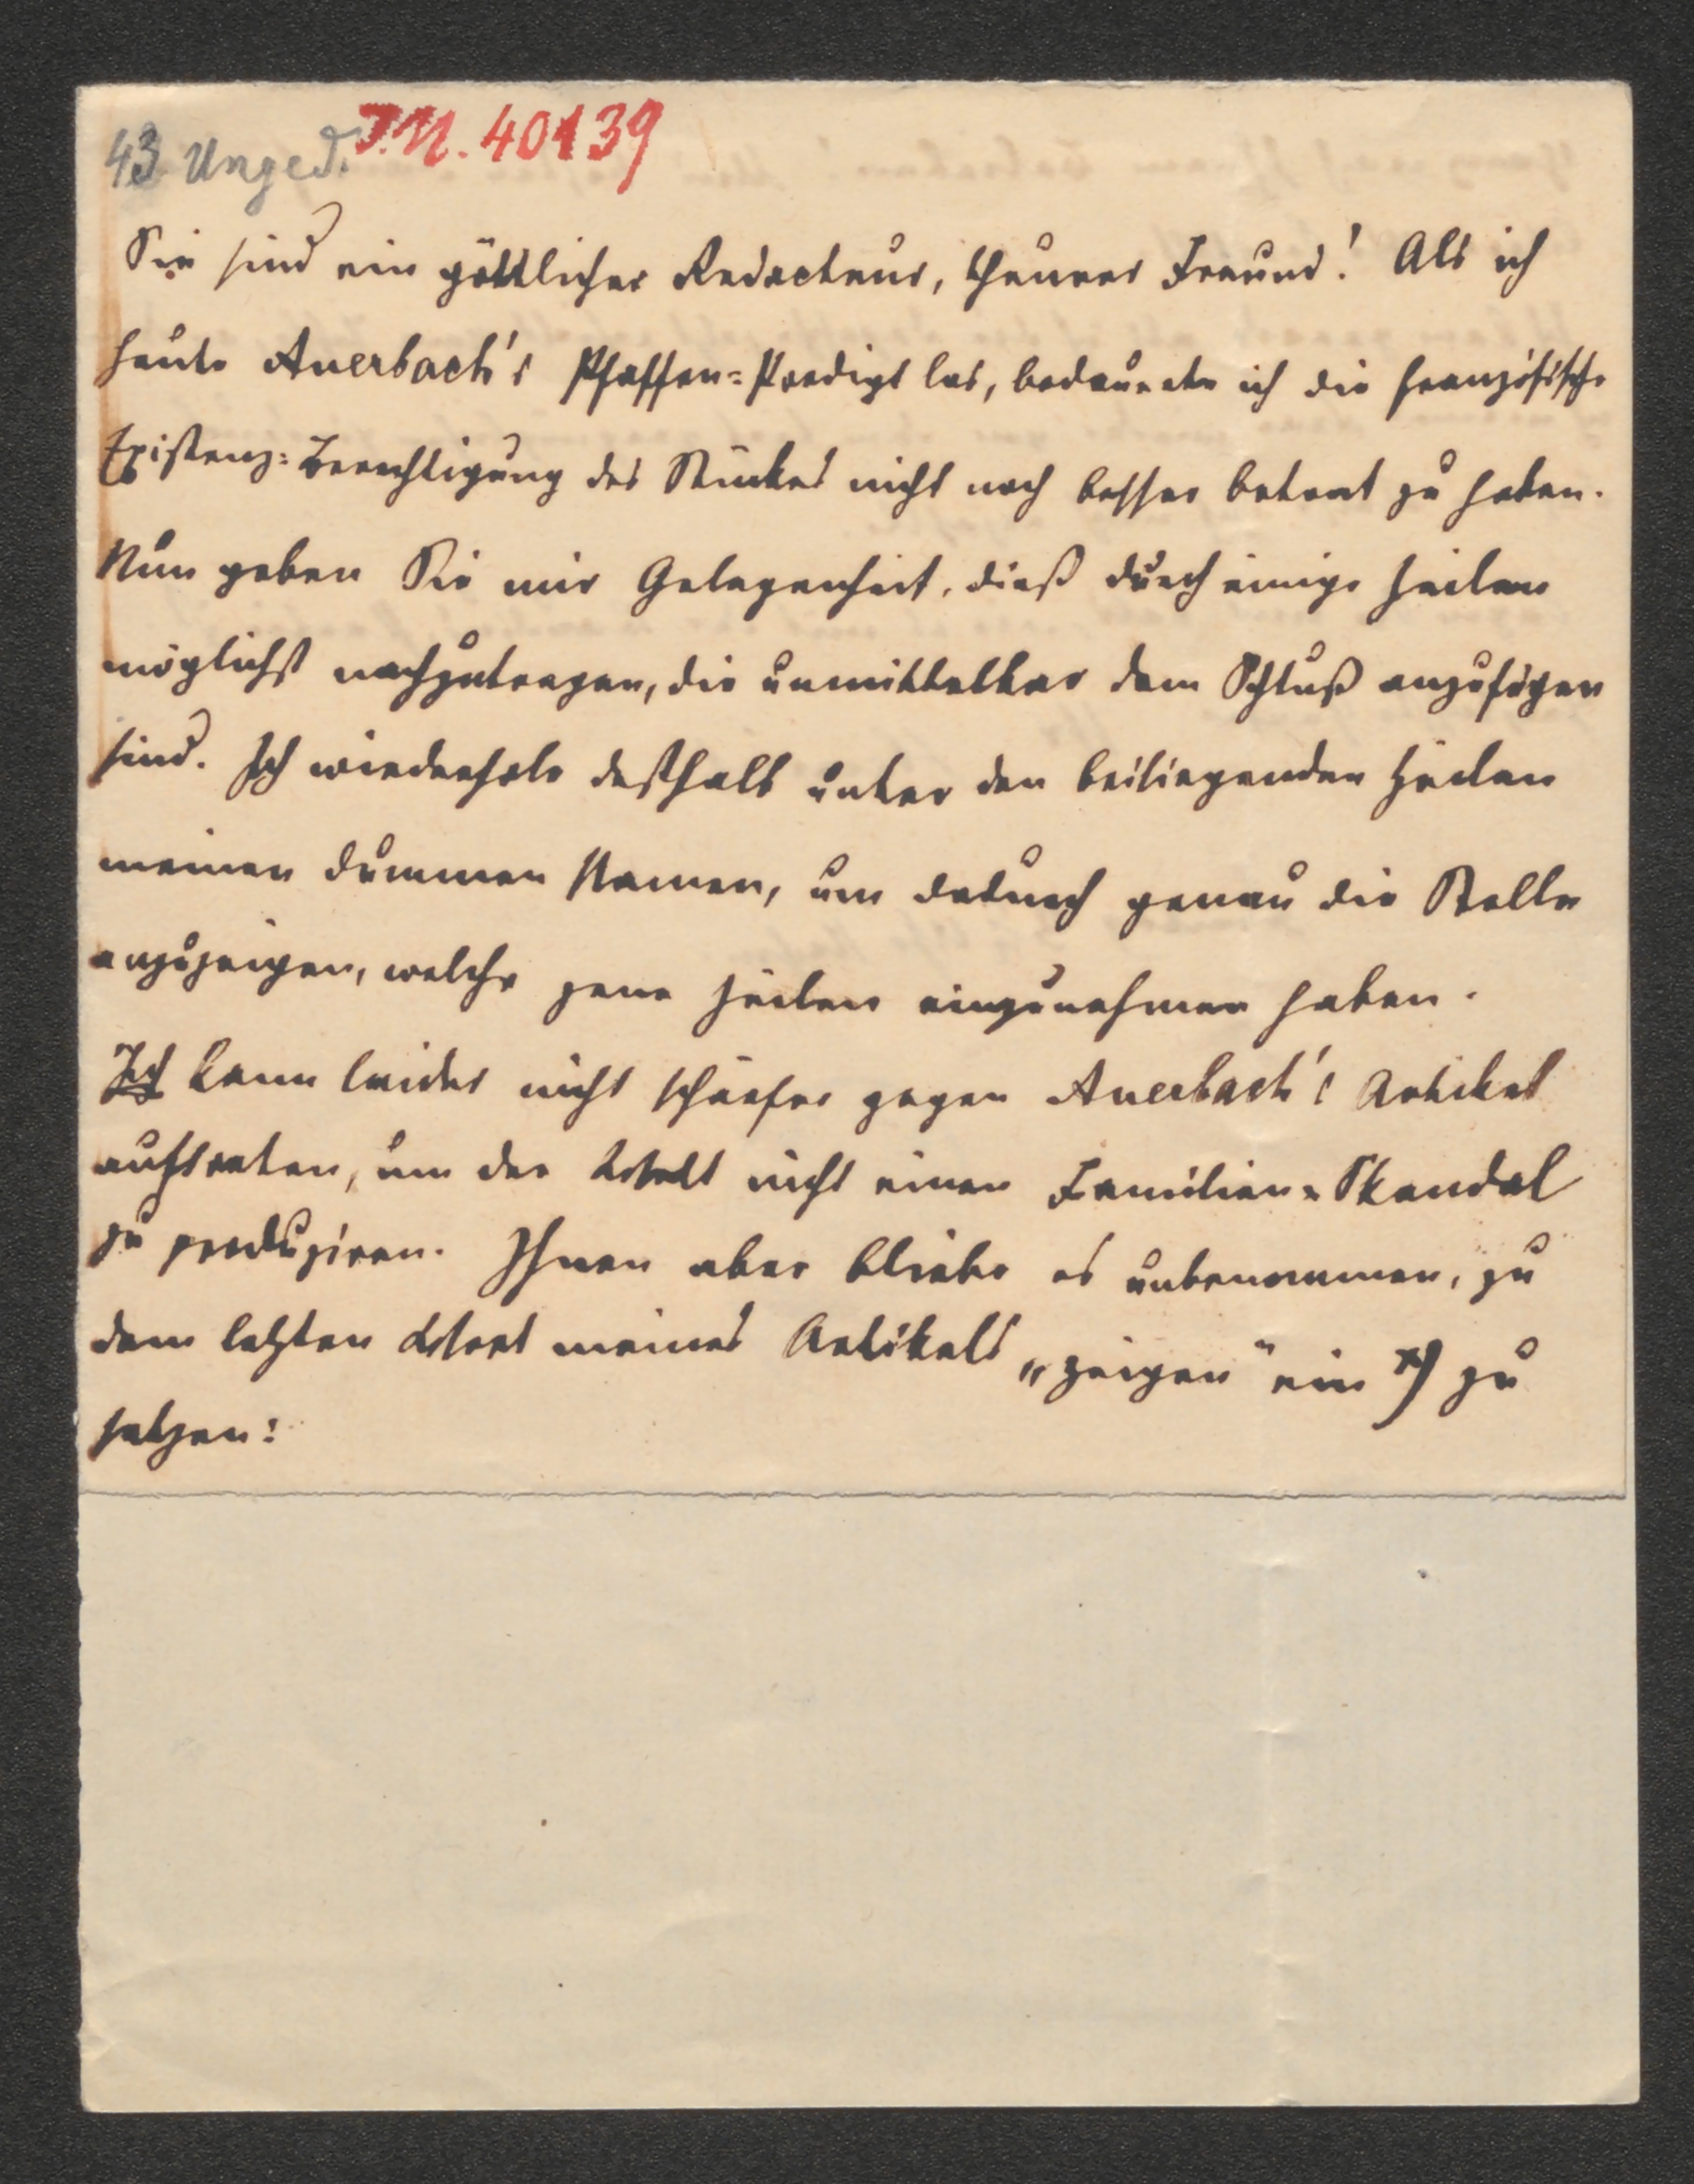 43 Unged. J.N. 40139
Sie sind ein göttlicher Redacteur, theurer Freund! Als ich
heute Auerbach's Pfaffen=Predigt las, bedauerte ich die französische
Existenz=Berechtigung des Stückes nicht noch besser betont zu haben.
Nun geben Sie mir Gelegenheit, dieß durch einige Zeilen
möglichst nachzutragen, die unmittelbar dem Schluß anzufügen
sind. Ich wiederhole deßhalb unter den beiliegenden Zeilen
meinen dummen Namen, um dadurch genau die Stelle
anzuzeigen, welche jene Zeilen einzunehmen haben.
Ich kann leider nicht schärfer gegen Auerbach's Artikel
auftreten, um der Welt nicht einen Familien=Skandal
zu produziren. Ihnen aber bliebe es unbenommen, zu
dem letzten Wort meines Artikels „zeigen" ein *) zu
setzen: